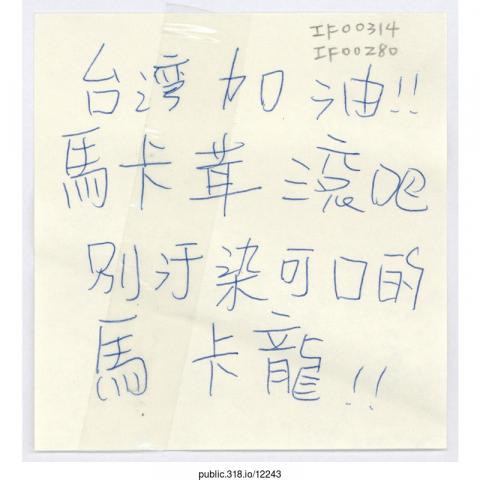 IF00314
IF00280
台湾加油!!
馬卡茸滾吧
別汙染可口的
馬卡龍!!
public.318.io/12243